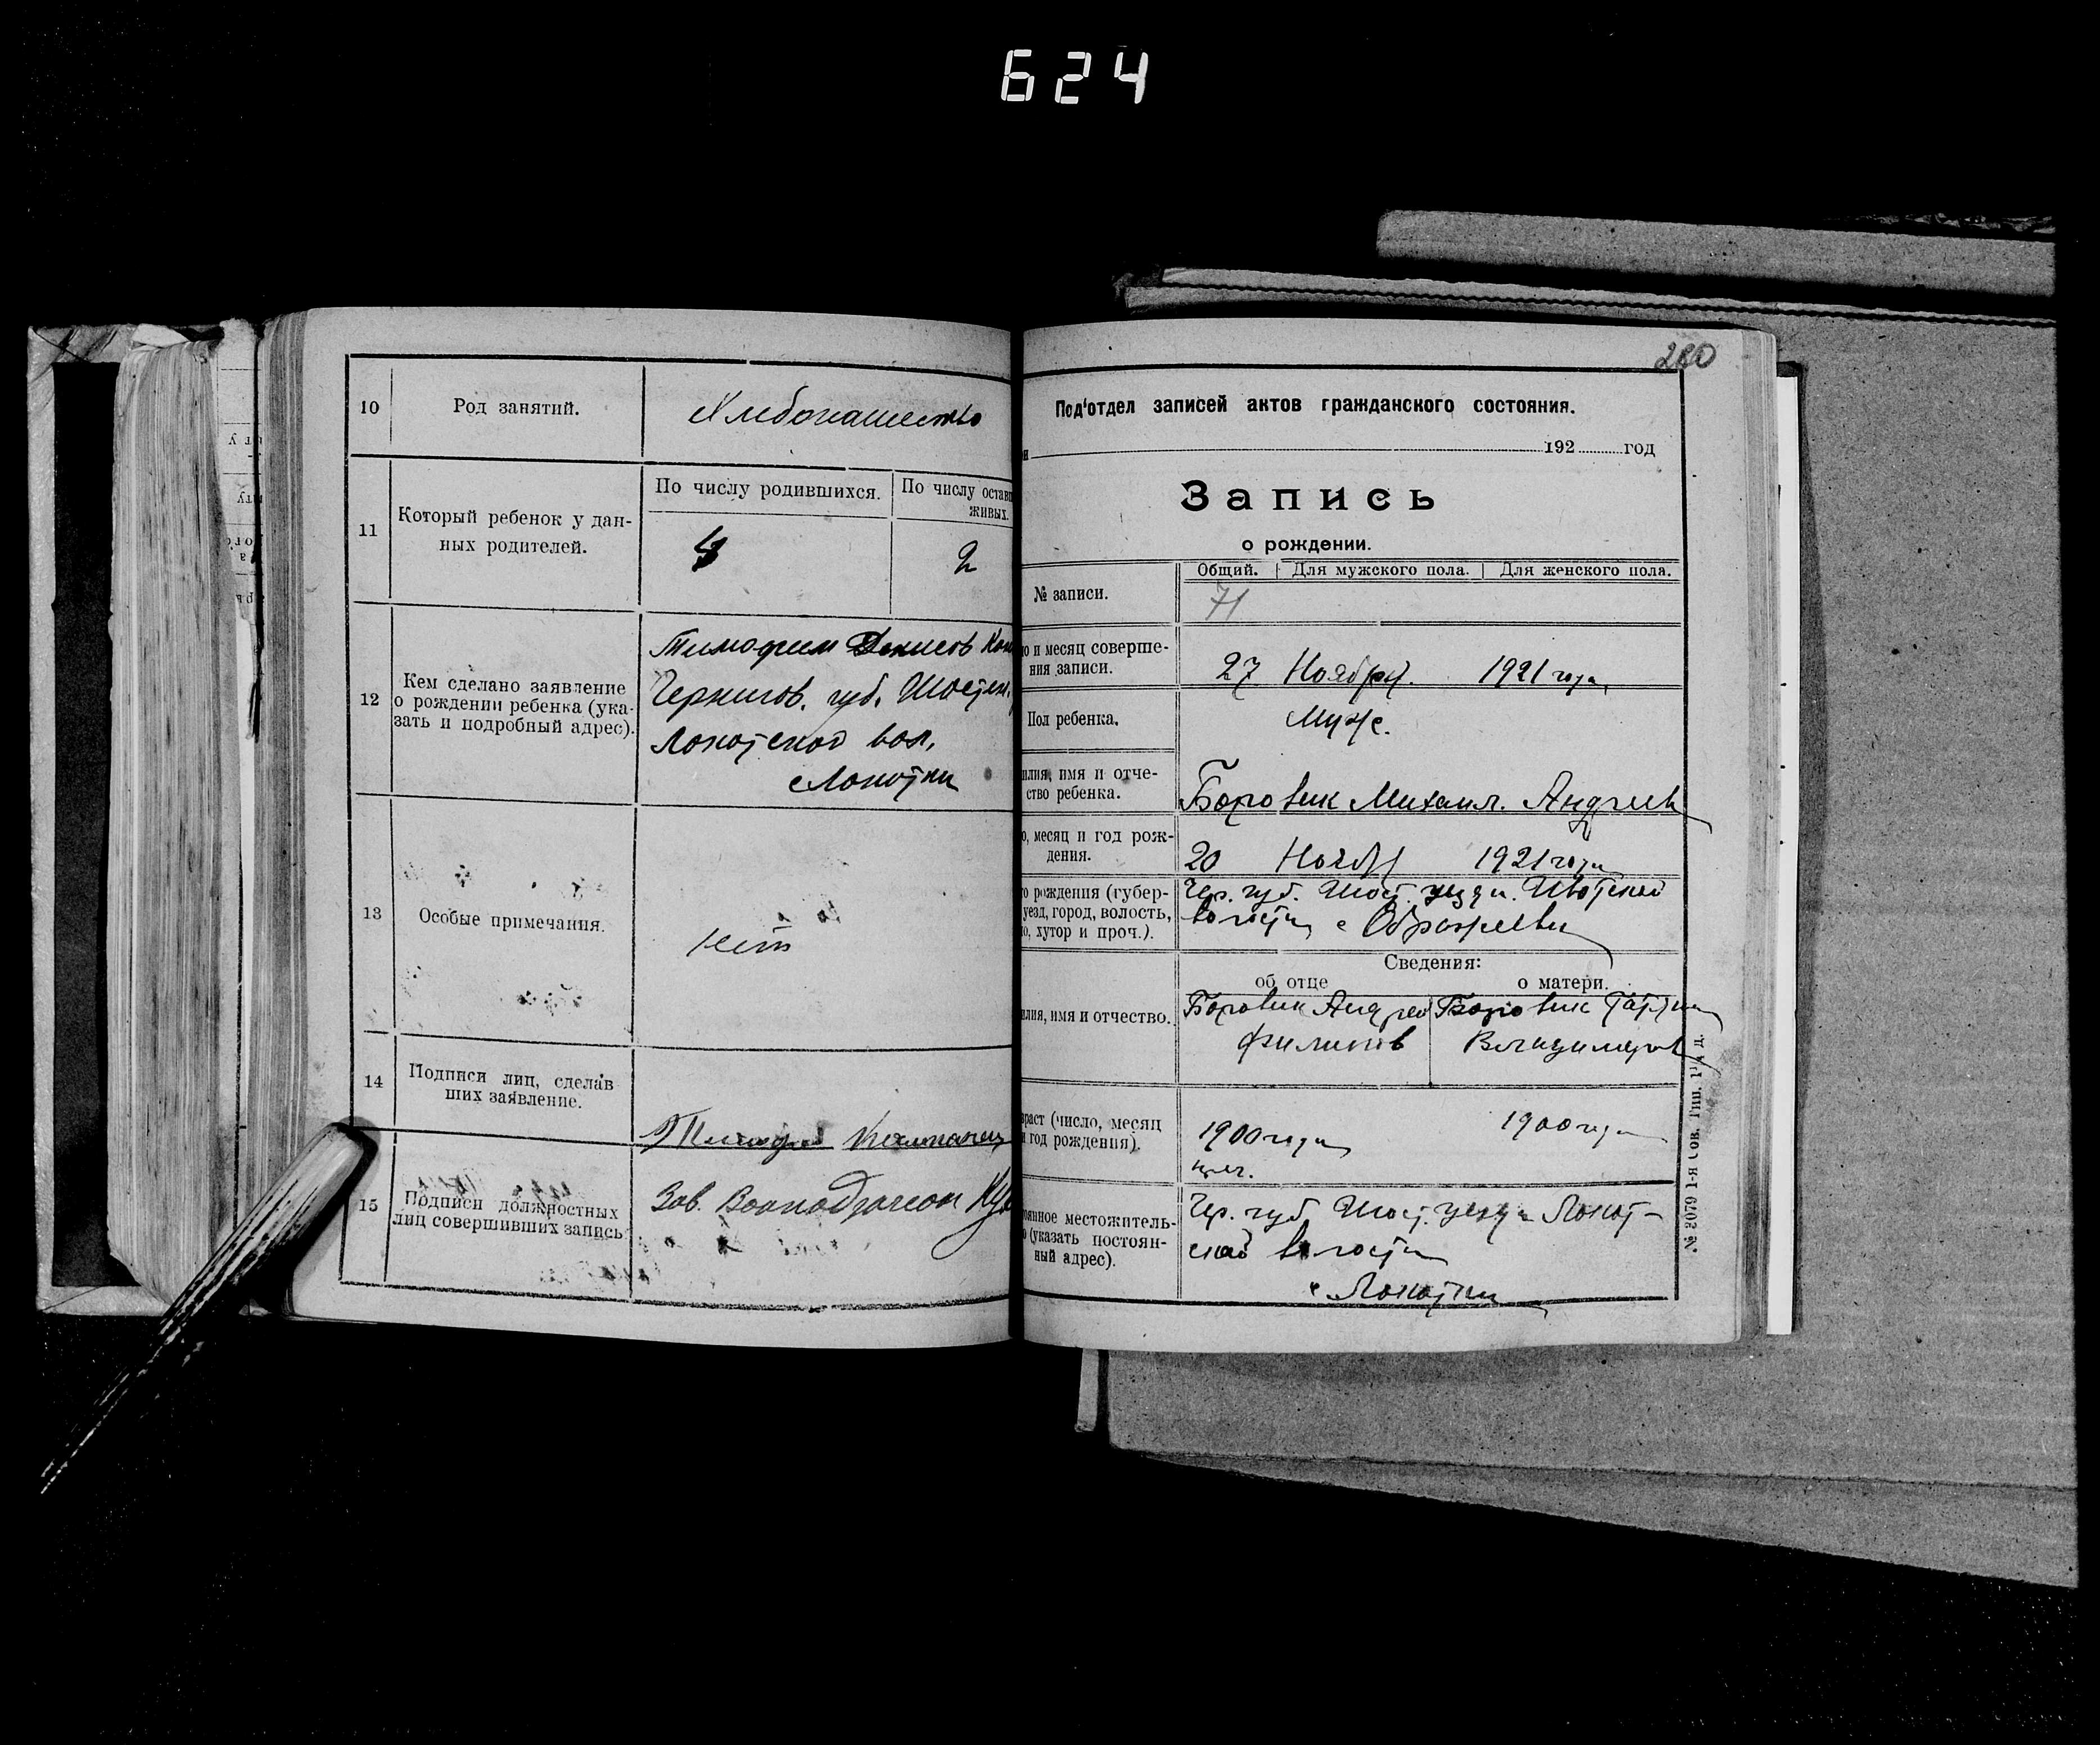 624
10
Род занятий.
Хлебопашество
11
Который ребенок у дан-
ных родителей.
По числу родившихся.
По числу остав
живых.
2
12
Кем сделано заявление
о рождении ребенка (ука-
зать и подробный адрес).
Тимофеем Денисов
Чернигов. губ. Шостен.
Локотской вол.
с Локотки
13
Особые примечания.
нет
14
Подписи лиц, сделав
ших заявление.
15
Подписи должностных
лиц совершивших запись
Зав.
280
Под'отдел записей актов гражданского состояния.
192 год
Запись
о рождении.
Общий. Для мужского пола. Для женского пола.
№ записи.
71
о и месяц соверше-
ния записи.
27 Ноября. 1921 года
Пол ребенка.
Муж.
илия, имя и отче-
ство ребенка.
Боровик Михаил. Андреев
о, месяц и год рож-
дения.
20 Ноября 1921 года
о рождения (губер-
уезд, город, волость,
о, хутор и проч.).
Чер. губ. Шост. уезда. Ивотской
волости с Ображеевки
Сведения:
об отце о матери.
илия, имя и отчество.
Боровик Андрей
Филипов
Боровик Татьяна
Владимиров
раст (число, месяц
и год рождения).
1900 года
1900 года
оянное местожитель-
о (указать постоян-
ный адрес).
Чер. губ Шост. уезда Локот-
ской волости
с Локотки
№ 2079 1-я Сов. Тип.